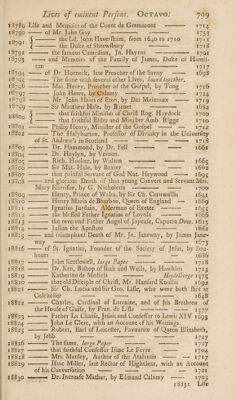 Lives of eminent Persons. OCTAVO. 709
18789 Life and Memoirs of the Count de Grammont — 1714
18790 — of Mr. John Gay — 1733
18791 — the Ld. John Haversham, from 1640 to 1710
18792 — the Duke of Shrewsbury — 1718
— the famous Comedian, Jo. Haynes — 1701
18793 — and Memoirs of the Family of James, Duke of Hamilton — 1717
18794 — of Dr. Horneck, late Preacher of the Savoy — 1698
18795 — The same with several other Lives, bound together,
18796 — Mat. Henry, Preacher of the Gospel, by Tong 1716
18797 — John Howe, by Calamy — 1724
18798 — Mr. John Hales of Eton, by Des Maizeaux — 1719
18799 — Sir Matthew Hale, by Burnet — 1682
18800 — that faithful Minister of Christ Rog. Haydock 1700
— that faithful Elder and Minister Amb. Rigge
18801 — Philip Henry, Minister of the Gospel — 1712
18802 — Tho. Halyburton, Professor of Divinity in the University of St. Andrew's in Scotland — 1718
18803 — Dr. Hammond, by Dr. Fell — 1661
18804 — Dr. Heylyn, by Vernon
18805 — Rich. Hooker, by Walton — 1665
18806 — Sir Mat. Hale, by Baxter — 1682
18807 — that painful Servant of God Nat. Heywood — 1695
18808 — and glorious Death of that young Convert and Servant Mrs. Mary Harrison, by G. Nicholson — 1700
18809 — Henry, Prince of Wales, by Sir Ch. Cornwallis
18810 — Henry Maria de Bourbon, Queen of England — 1669
18811 — Ignatius Jurdain, Alderman of Exeter — 1654
18812 — the blessed Father Ignatius of Loyola — 1666
18813 — the reverend Father Angel of Joyeuse, Capucin
18814 — Julian the Apostate — 1682
18815 — and triumphant Death of Mr. Jn. Janeway, by James Janeway — 1673
18816 — of St. Ignatius, Founder of the Society of Jesus, by Bouhours — 1686
18817 — John Kettlewell, large Paper — 1718
18818 — Dr. Ken, Bishop of Bath and Wells, by Hawkins 1713
18819 — Katherine de Medicis
18820 — that old Disciple of Christ, Mr. Hanserd Knollis 1692
18821 — Sir Ch. Lucas and Sir Geo. Lisle, who were both shot at Colchester — 1648
18822 — Charles, Cardinal of Lorraine, and of his Brethren of the House of Guise, by Fran. de Lisle — 1577
18823 — Father La Chaise, Jesuit and Confessor to Lewis XIV 1693
18824 — John Le Clerc, with an Account of his Writings.
18825 — Robert, Earl of Leicester, Favourite of Queen Elizabeth, by Jebb — 1727
18826 — The same, large Paper — 1727
18827 — that faithful Confessor Isaac Le Fevre — 1704
18828 — Mrs. Manley, Author of the Atalantis — 1717
18829 — Isaac Miller, last Rector of Highclere, with an Account of his Conversation — 1721
18830 — Dr. Increase Mather, by Edmund Calamy — 1725
18831 Life